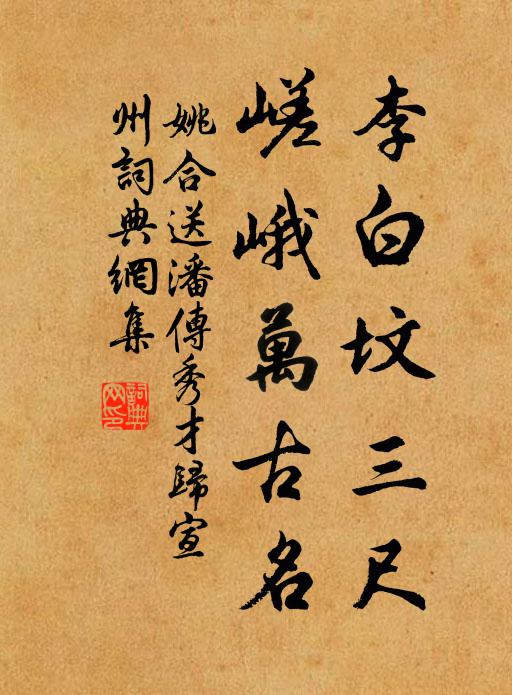 李白墳三尺
嵯峨萬古名
姚合送潘傳秀才歸宣
州詞典網集
詞典
网印